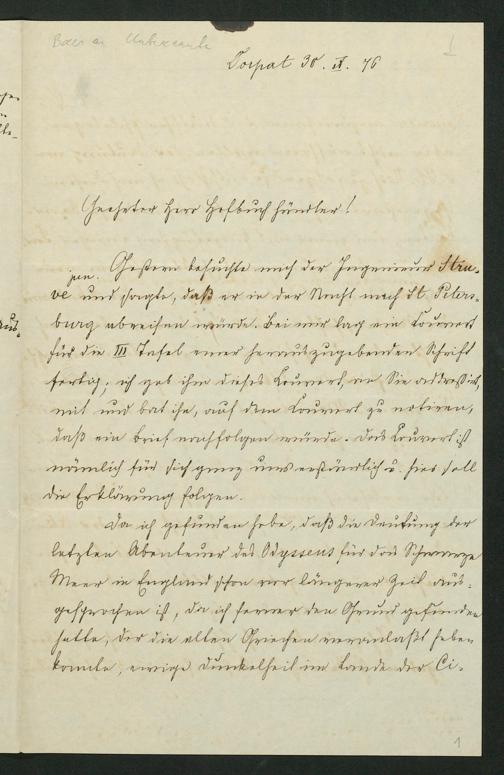 Baer an Unbekannte
1
Dorpat 30. IX. 76
Geehrter Herr Hofbuchhändler!
Gestern besuchte mich der Ingenieur Stru-
jun.
ve und sagte, daß er in der Nacht nach St. Peters-
burg abreisen würde. Bei mir lag ein Couvert
für die III Tafel einer herauszugebenden Schrift
fertig; ich gab ihm dieses Couvert, an Sie addressirt,
mit und bat ihn, auf dem Couvert zu notiren,
daß ein Brief nachfolgen würde. Das Couvert ist
nämlich für sich ganz unverständlich u. hier soll
die Erklärung folgen.
Da ich gefunden habe, daß die Deutung der
letzten Abenteuer des Odysseus für das Schwarze
Meer in England schon vor längerer Zeit aus-
gesprochen ist, da ich ferner den Grund gefunden
hatte, der die alten Griechen veranlaßt haben
konnte, ewige Dunkelheit im Lande der Ci-
1